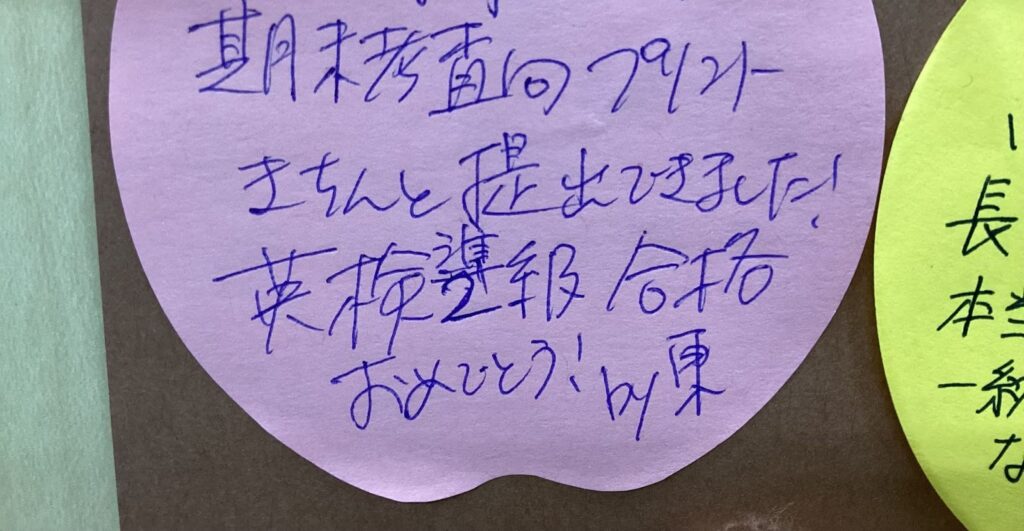 期末考査向プリント
きちんと提出できました!
英検準2級 合格
おめでとう! by 東
長
本当
一緒
な